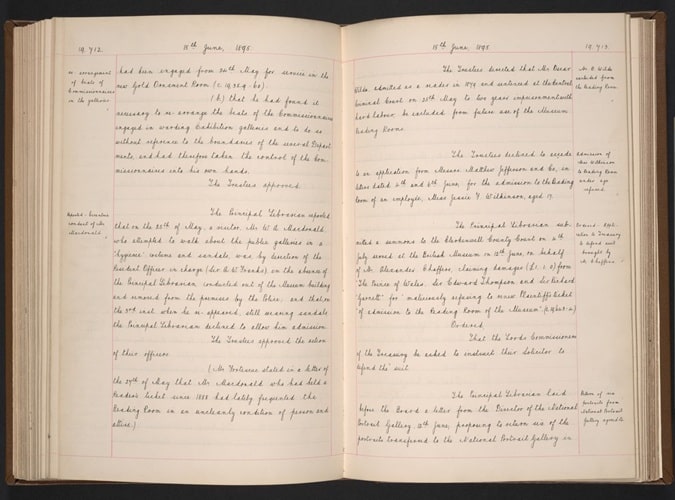 19,712.
15th June, 1895
re arrangement
of beats of
Commissionaires
in the galleries
had been engaged from 24th May for service in the
new Gold Ornament Room (c. 19,329-60).
(b) that he had found it
necessary to re-arrange the beats of the Commissionaires
engaged in warding Exhibition galleries and to do so
without reference to the boundaries of the several Depart-
ments, and had therefore taken the control of the Com-
missionaires into his own hands.
The Trustees approved.
conduct of Mr
Macdonald.
The Principal Librarian reported
that on the 25th of May, a visitor, Mr W. A. Macdonald,
who attempted to walk about the public galleries in a
"hygienic" costume and sandals, was by direction of the
Resident Officer in charge (Sir A. W. Franks), in the absence of
the Principal Librarian, conducted out of the Museum building
and removed from the premises by the Police; and that, on
the 3rd inst. when he re-appeared, still wearing sandals
the Principal Librarian declined to allow him admission.
The Trustees approved the action
of their officers.
(Mr Fortescue stated in a letter of
the 27th of May that Mr Macdonald who had held a
Reader's ticket since 1888 had lately frequented the
Reading Room in an uncleanly condition of person and
attire.)
15th June, 1895
19,713.
Mr O. Wilde
excluded from
the Reading Room.
The Trustees directed that Mr Oscar
Wilde admitted as a reader in 1879 and sentenced at the Central
Criminal Court on 25th May to two years imprisonment with
hard labour, be excluded from future use of the Museum
Reading Room.
Admission of
Miss Wilkinson
to Reading Room
under age
refused.
The Trustees declined to accede
to an application from Messrs Matthew Jefferson and Co, in
letters dated 4th and 6th June, for the admission to the Reading
Room of an employée, Miss Jessie Y. Wilkinson, aged 19.
to Treasury
to defend suit
brought by
A. Chaffers.
The Principal Librarian sub-
mitted a summons to the Clerkenwell County Court on 4th
July served at the British Museum on 12th June, on behalf
of Mr Alexander Chaffers, claiming damages (£1. 0. 0) from
"The Prince of Wales. Sir Edward Thompson and Sir Richard
Garnett" for "maliciously refusing to renew Plaintiff's ticket
of admission to the Reading Room of the Museum"
Ordered,
That the Lords Commissioners
of the Treasury be asked to instruct their Solicitor to
defend the suit.
Return of six
portraits from
National Portrait
Gallery agreed to.
The Principal Librarian laid
before the Board a letter from the Director of the National
Portrait Gallery, 12th June, proposing to return six of the
portraits transferred to the National Portrait Gallery in